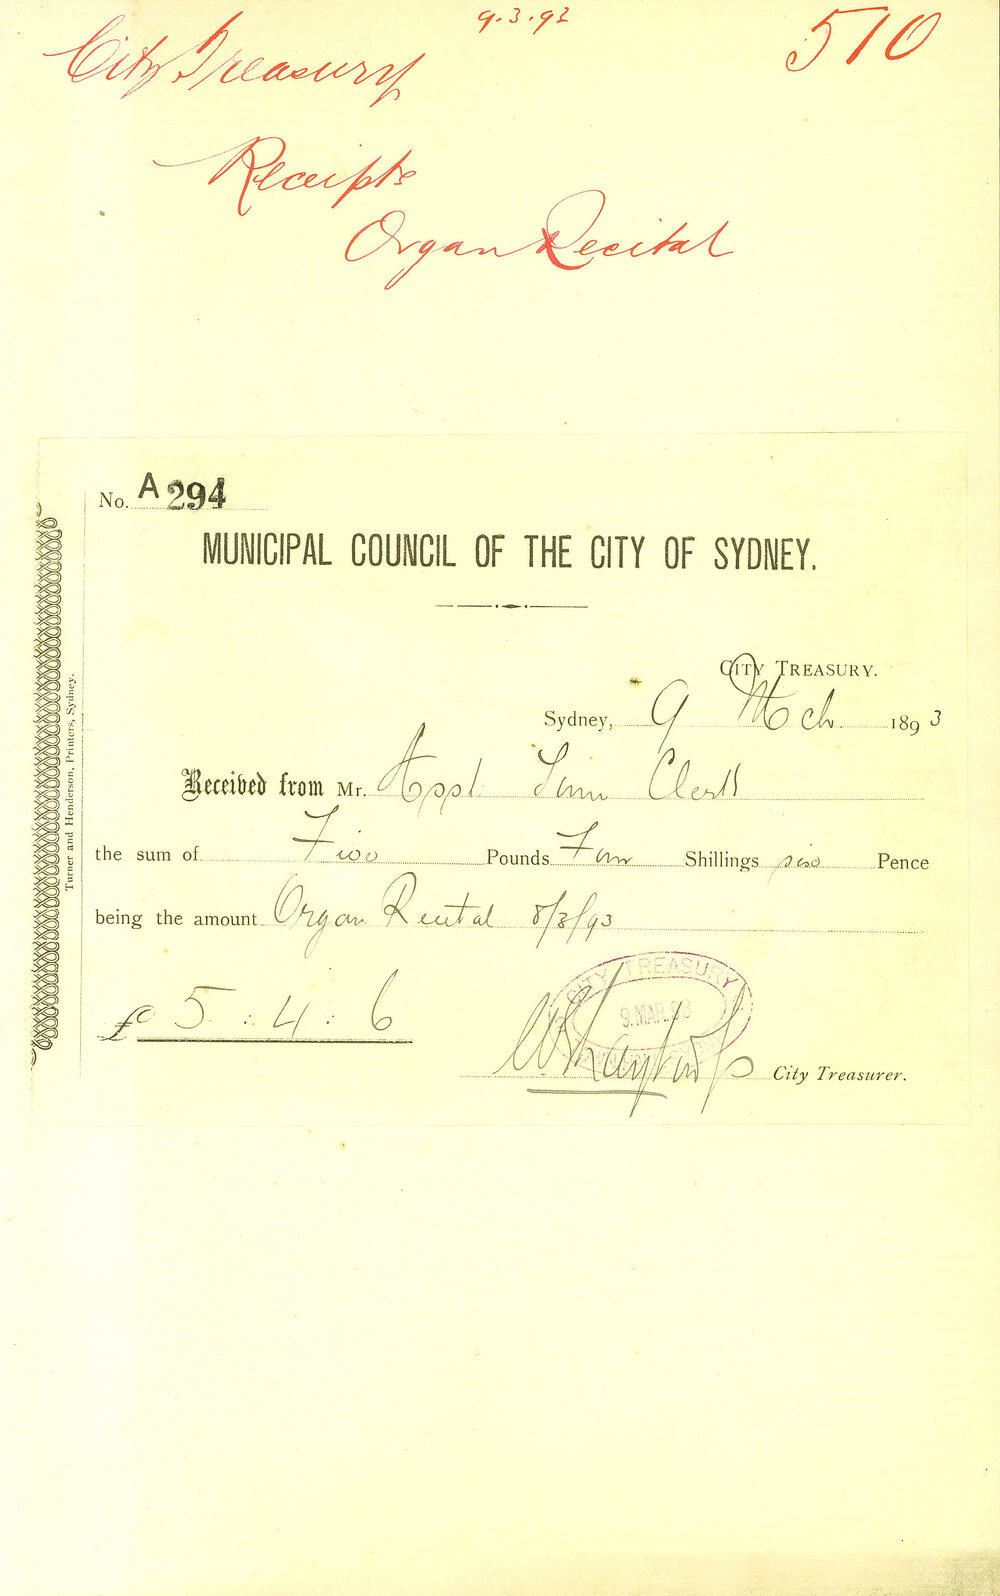 9.3.93
510
City Treasury
Receipts
Organ Recital
No. A 294
MUNICIPAL COUNCIL OF THE CITY OF SYDNEY.
CITY TREASURY.
Sydney, 9 Mch 1893
Received from Mr. Asst. Town Clerk
the sum of Five Pounds Four Shillings six Pence
being the amount Organ Recital 8/3/93
£ 5 : 4 : 6
CITY TREASURY
9.MAR.93
City Treasurer.
Turner and Henderson, Printers, Sydney.